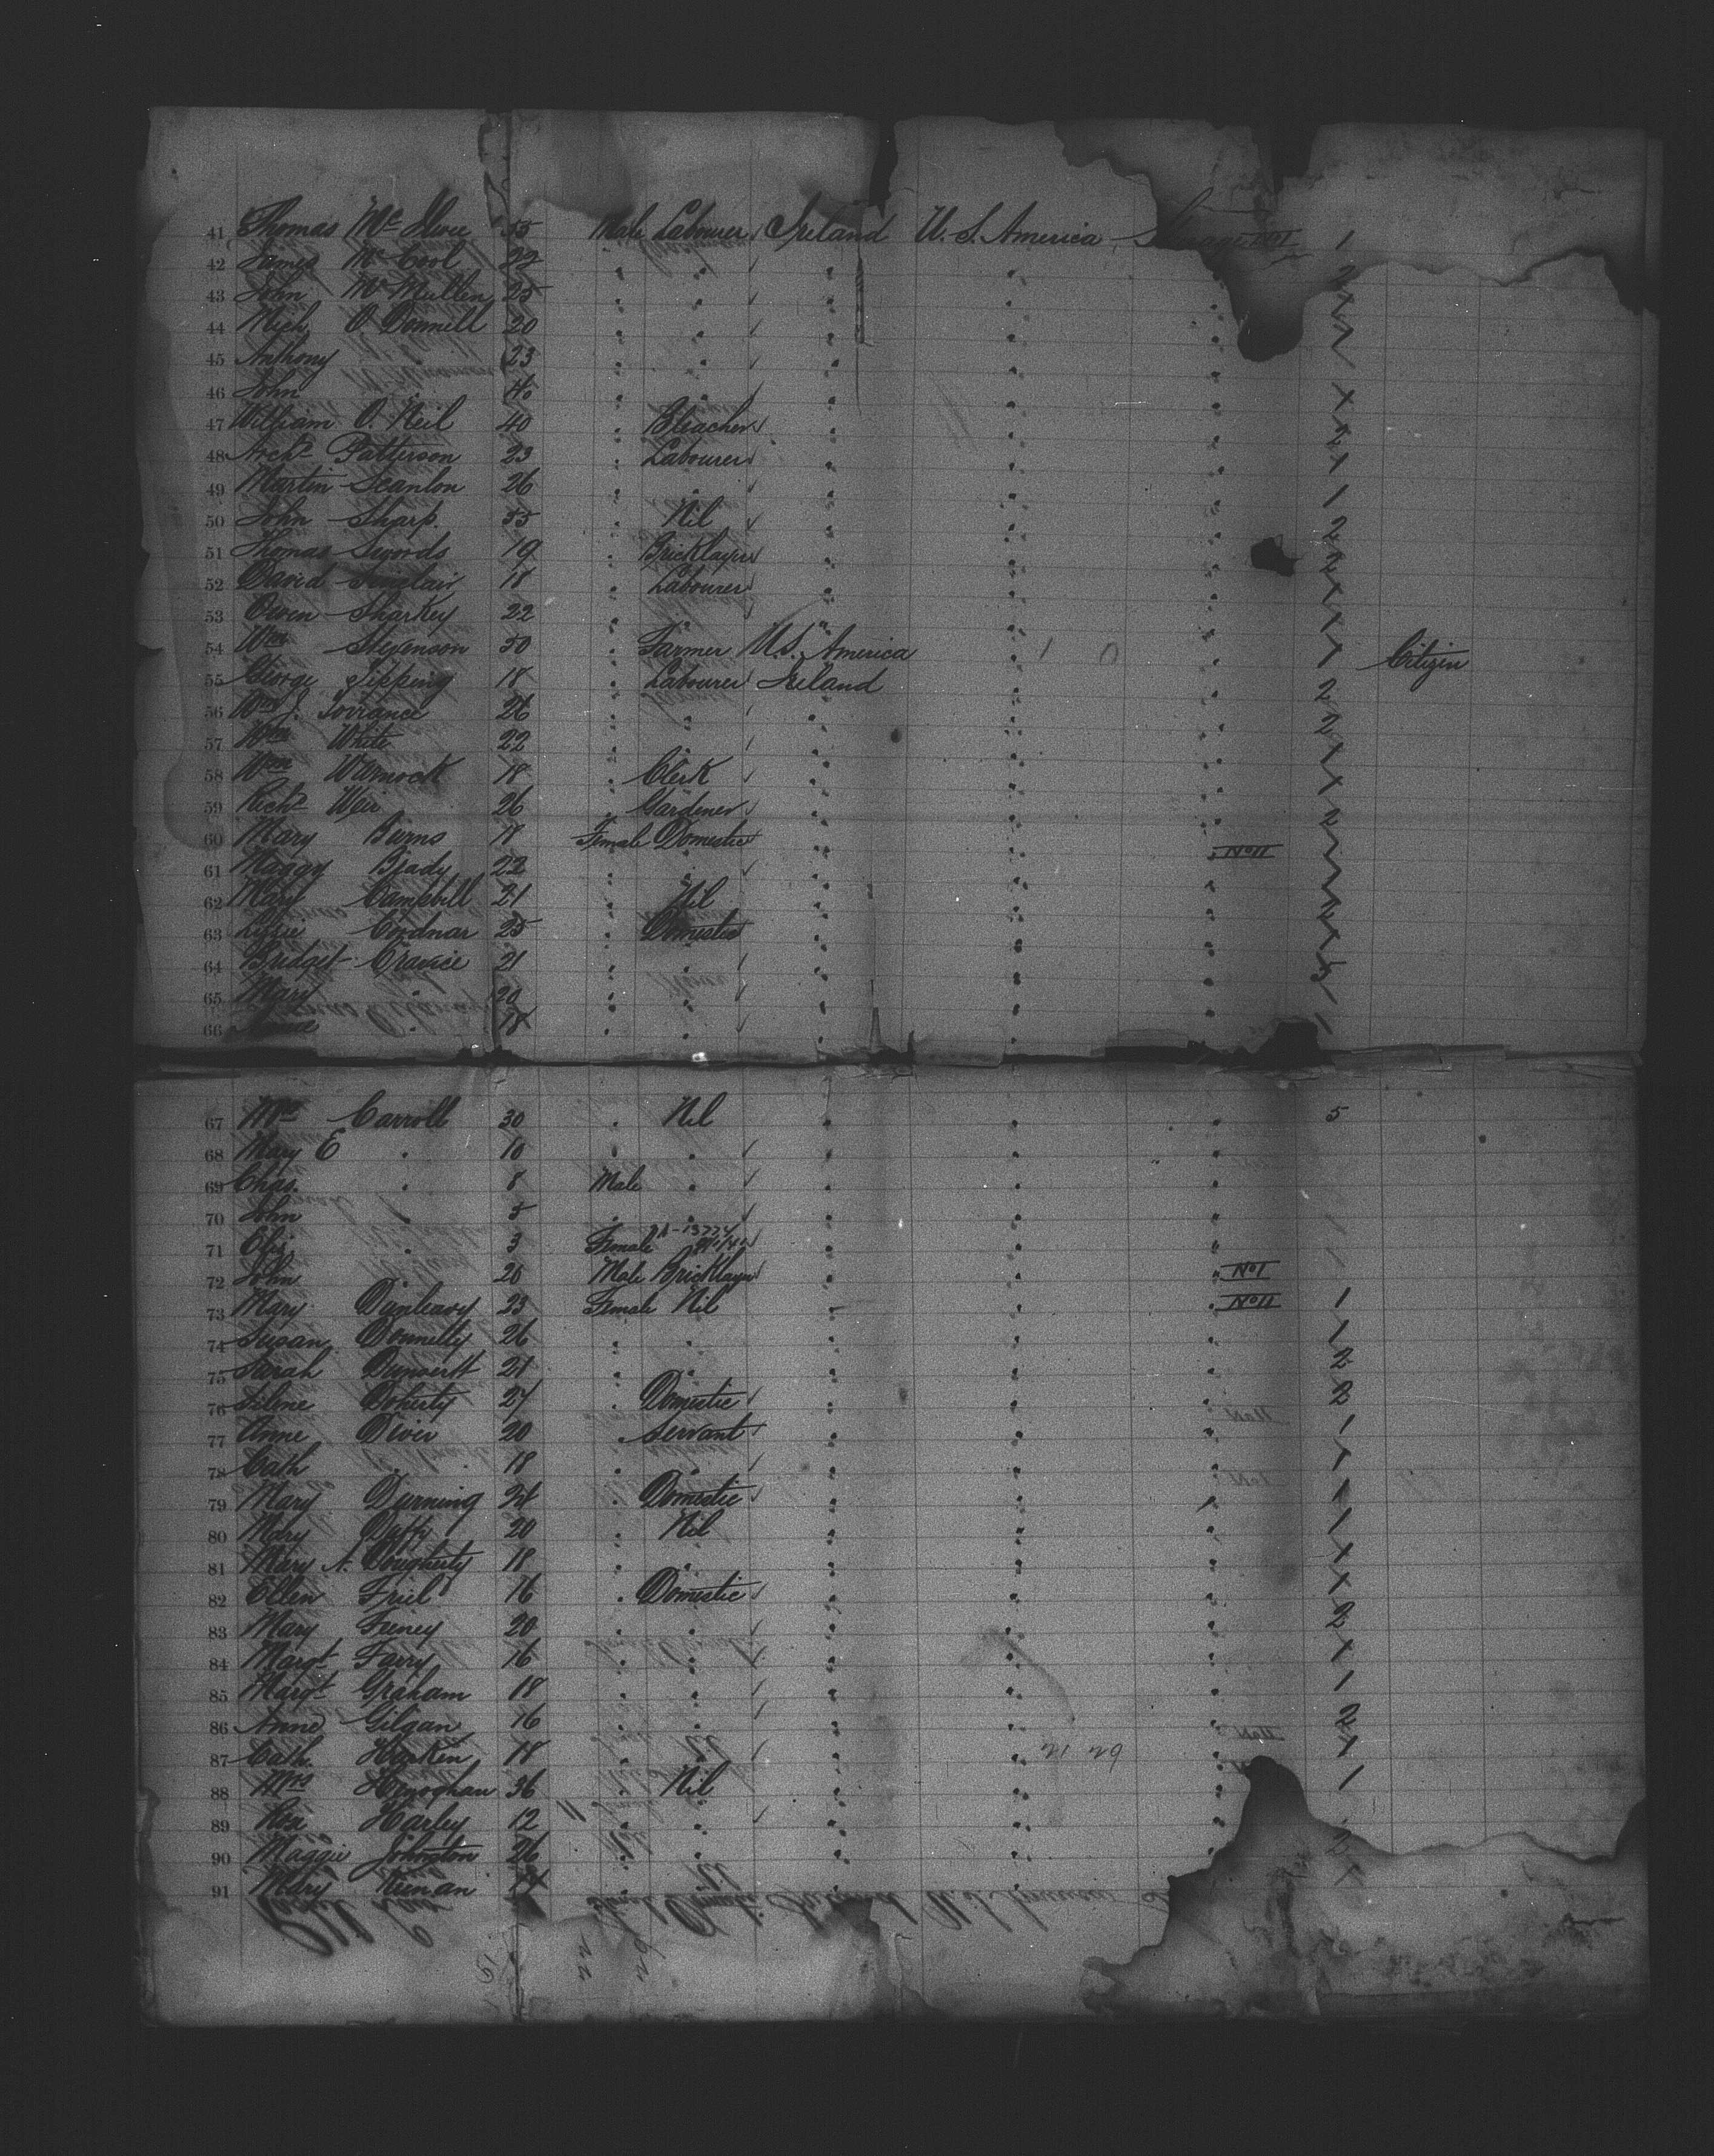 41 Thomas Mc 55 Male Labourer Ireland U.S. America No I 1
42 James McCool 22 " " " " " 2
43 John McMullen 25 " " " " " 1
44 Mich O.Donnell 20 " " " " " 1
45 Anthony " 23 " " " " "
46 John " " " " " " 1
47 William O.Neil 40 " Bleacher " " " 2
48 Archd Patterson 23 " Labourer " " " 1
49 Martin Scanlon 26 " " " " " 1
50 John Sharp. 55 " Nil " " " 2
51 Thomas Swords 19 " Bricklayer " " " 2
52 David Sinclair 18 " Labourer " " " 1
53 Owen Sharkey 22 " " " " " 1
54 Wm Stevenson 50 " Farmer U.S. America 1 0 " 1 Citizen
55 George Tipping 18 " Labourer Ireland " " 2
56 Wm J. Torrance 26 " " " " " 2
57 Wm White 22 " " " " " 1
58 Wm Warnock 18 " Clerk " " " 1
59 Richd Weir 26 " Gardener " " " 2
60 Mary Burns 18 Female Domestic " " " No II 1
61 Maggy Brady 22 " " " " " 1
62 Mary Campbell 21 " Nil " " " 2
63 Lizzie Cordnar 25 " Domestic " " " 1
64 Bridget 21 " " " " " 5
65 Mary " 20 " " " " " 1
66 " 18 " " " " " 1
67 Mrs Carroll 30 " Nil " " " 5
68 Mary E " 10 " " " " "
69 Chas. " 8 Male " " " "
70 John " 5 " " " " "
71 " 3 Female " " " "
72 John " 26 Male Bricklayer " " " No I
73 Mary Dunleavy 23 Female Nil " " " No II 1
74 Susan Donnelly 26 " " " " " 1
75 Sarah 21 " " " " " 2
76 Doherty 27 " Domestic " " " 2
77 Anne Diver 20 " Servant " " " 1
78 Cath " 18 " " " " " 1
79 Mary Durning 24 " Domestic " " " 1
80 Mary Duffy 20 " Nil " " " 1
81 Mary A. Dougherty 18 " " " " " 1
82 Ellen Friel 16 " Domestic " " " 1
83 Mary Feeney 20 " " " " " 2
84 Margt Farry 16 " " " " " 1
85 Margt Graham 18 " " " " " 1
86 Anne Gilgan 16 " " " " " 2
87 Cath. Harkin 18 " " " 21 29 " 1
88 Mrs 36 " Nil " " " 1
89 Rose Harley 12 " " " " "
90 Maggie Johnston 26 " " " " " 2
91 Mary Keenan " " " " 1